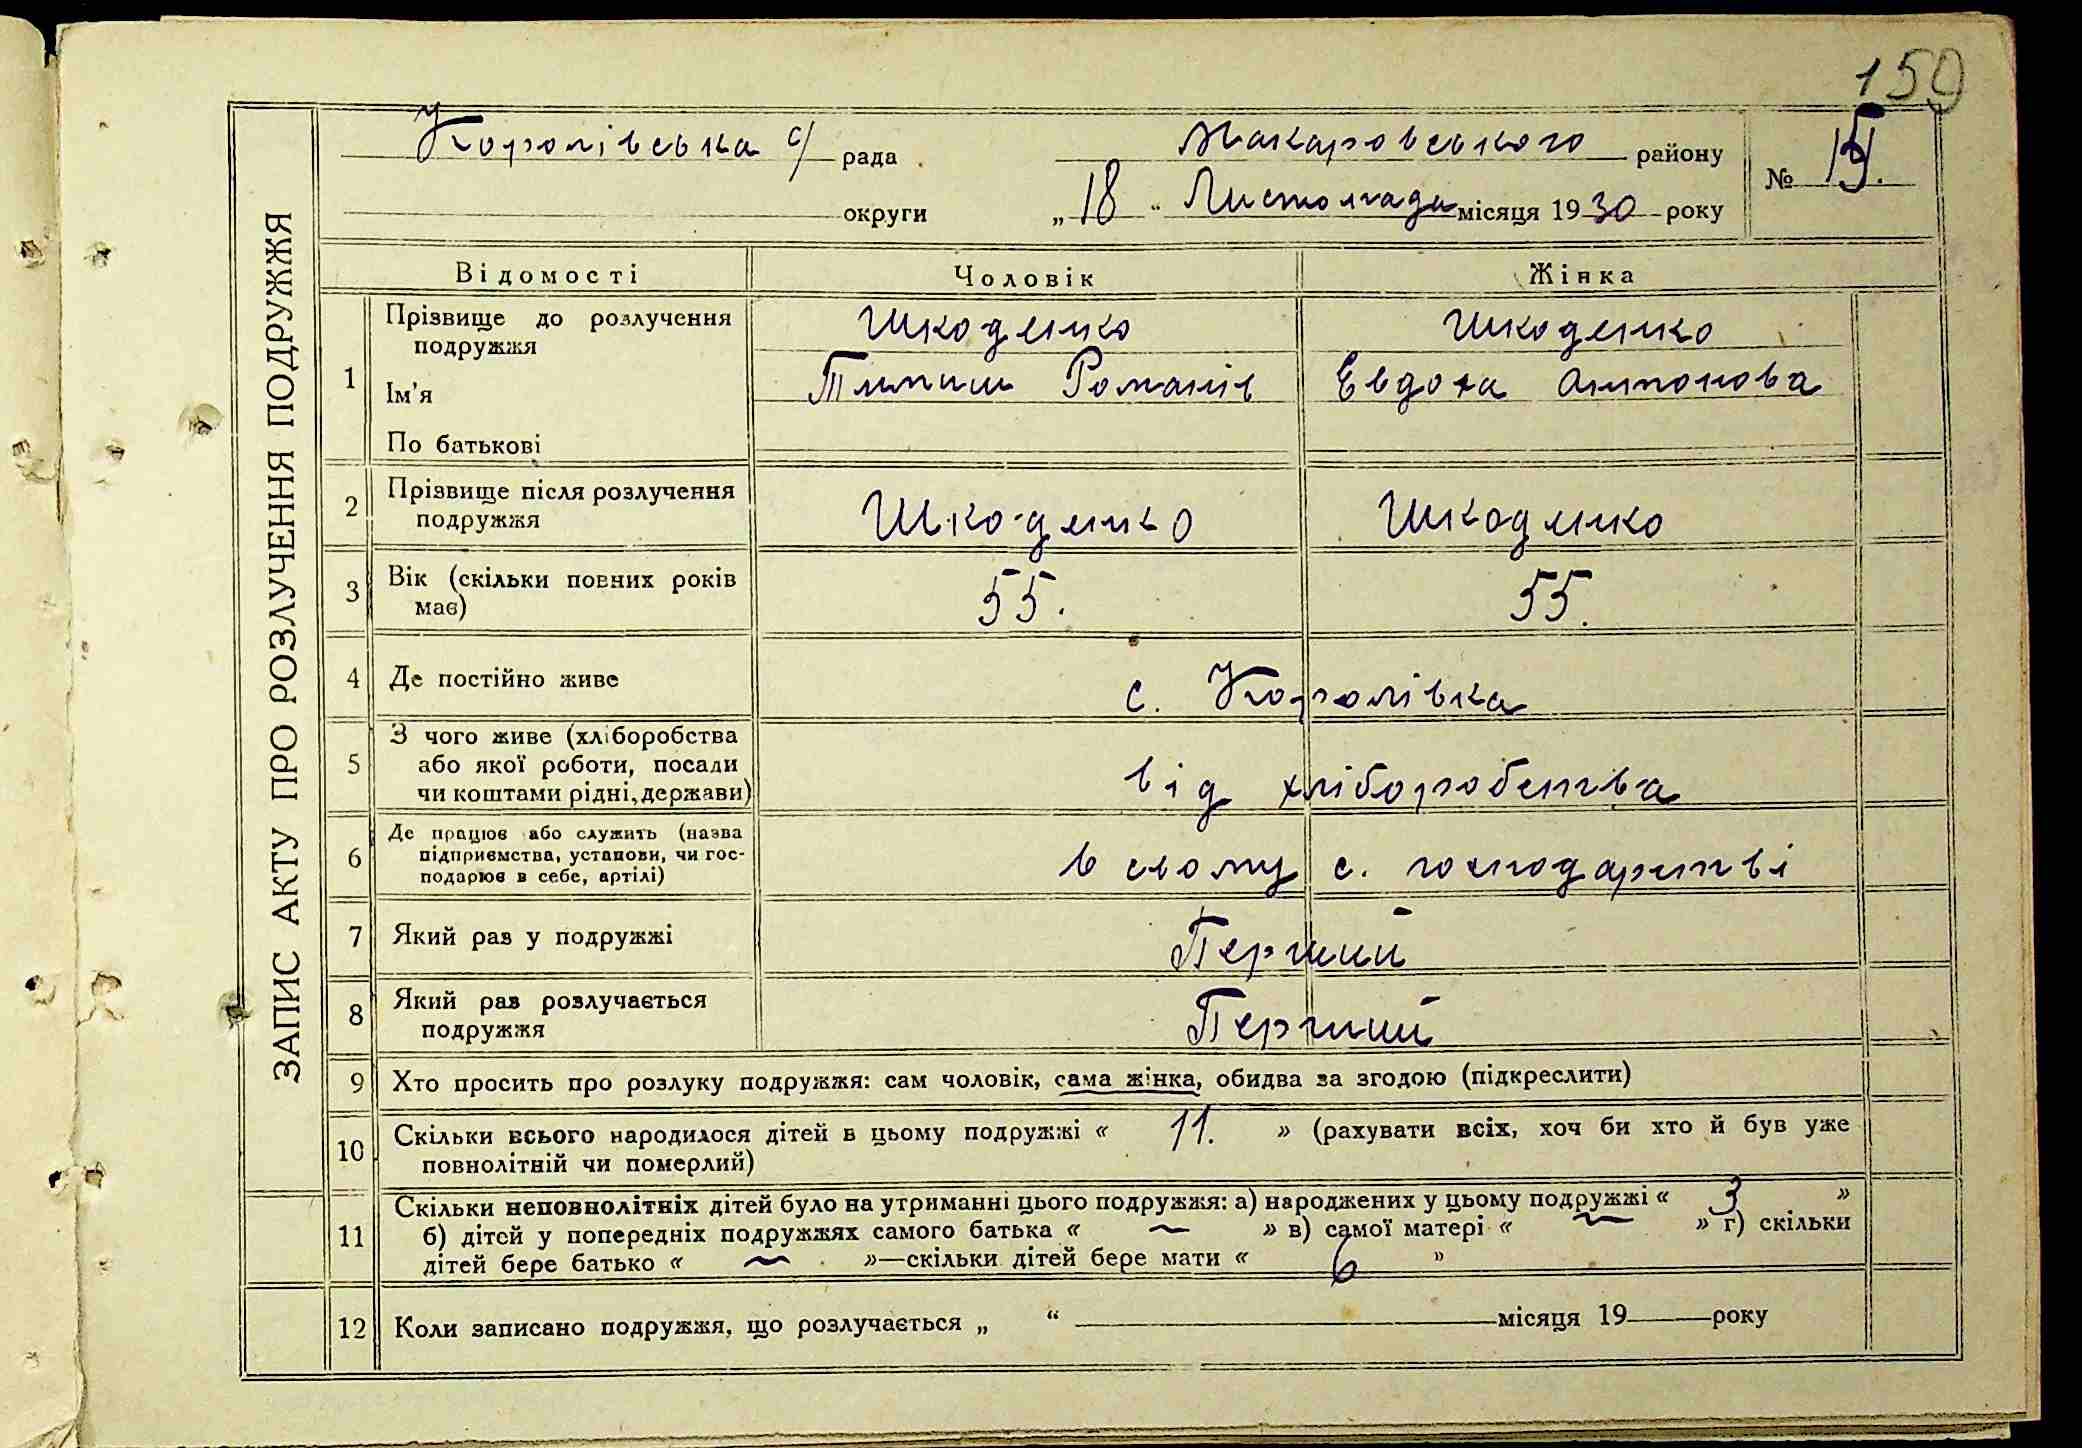 159
ЗАПИС АКТУ ПРО РОЗЛУЧЕННЯ ПОДРУЖЖЯ
Королівська с/ рада Макаровського району
№
округи „18“ Листопада місяця 1930 року
Відомості Чоловік Жінка
1 Прізвище до розлучення подружжя Шкоденко Шкоденко
Ім'я Тимиш Романів Евдоха Антонова
По батькові
2 Прізвище після розлучення
подружжя Шкоденко Шкоденко
3 Вік (скільки повних років
має) 55. 55.
4 Де постійно живе с. Королівка
5 З чого живе (хліборобства
або якої роботи, посади
чи коштами рідні, держави) від хліборобства
6 Де працює або служить (назва
підприємства, установи, чи гос-
подарює в себе, артілі) в свому с. господарстві
7 Який раз у подружжі Перший
8 Який раз розлучається
подружжя Перший
9 Хто просить про розлуку подружжя: сам чоловік, сама жінка, обидва за згодою (підкреслити)
10 Скільки всього народилося дітей в цьому подружжі « 11. » (рахувати всіх, хоч би хто й був уже
повнолітній чи померлий)
11 Скільки неповнолітніх дітей було на утриманні цього подружжя: а) народжених у цьому подружжі « 3 »
б) дітей у попередніх подружжях самого батька « — » в) самої матері « — » г) скільки
дітей бере батько « — »—скільки дітей бере мати « 6 »
12 Коли записано подружжя, що розлучається „ “ місяця 19 року